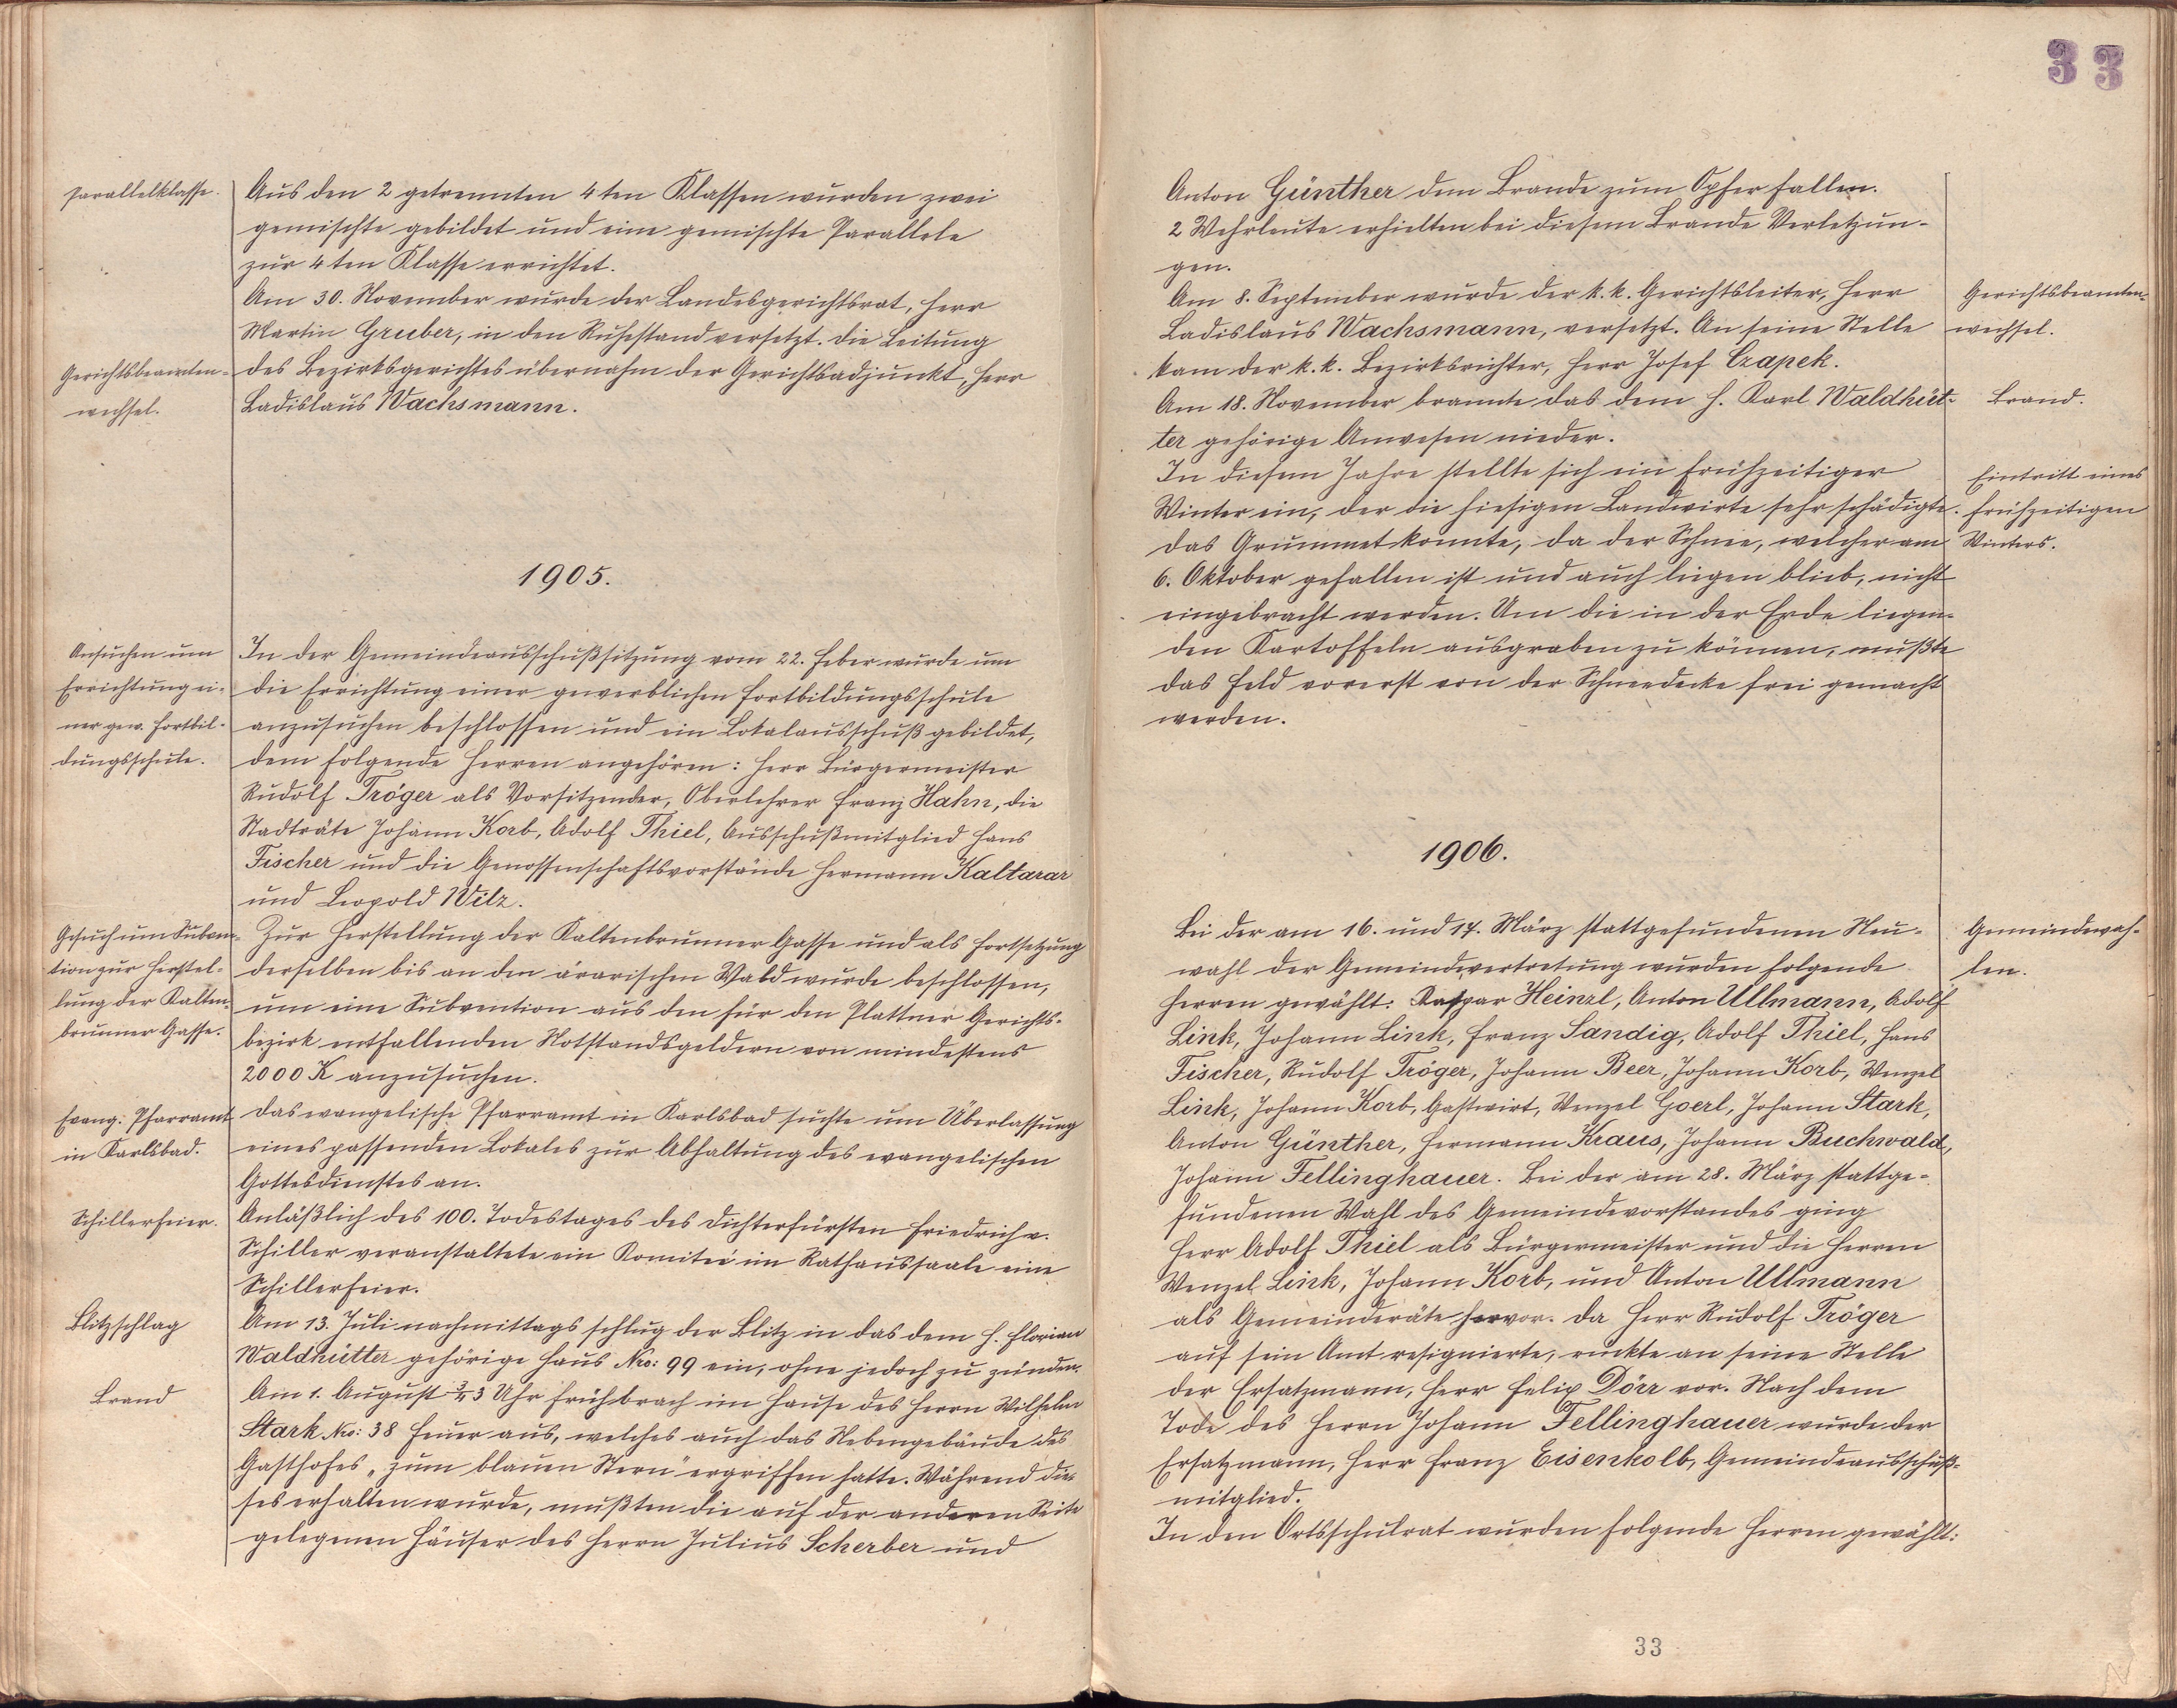 Parallelklasse.
Aus den 2 getrennten 4ten Klassen wurden zwei
gemischte gebildet und eine gemischte Parallele
zur 4ten Klasse errichtet.
Am 30. November wurde der Landesgerichtsrat, Herr
Martin Gruber, in den Ruhestand versetzt. Die Leitung
Gerichtsbeamten-
wechsel.
des Bezirksgerichtes übernahm der Gerichtsadjunkt, Herr
Ladislaus Wachsmann.
1905.
Ansuchen um
Errichtung ei-
ner gew. Fortbil-
dungsschule.
In der Gemeindeausschußsitzung vom 22. Feber wurde um
die Errichtung einer gewerblichen Fortbildungsschule
anzusuchen beschlossen und ein Lokalausschuß gebildet,
dem folgende Herren angehören: Herr Bürgermeister
Rudolf Tröger als Vorsitzender, Oberlehrer Franz Hahn, die
Stadträte Johann Korb, Adolf Thiel, Ausschußmitglied Hans
Fischer und die Genossenschaftsvorstände Hermann Kaltarar
und Leopold Wilz.
Gesuch um Subven-
tion zur Herstel-
lung der Kalten-
brunner Gasse.
Zur Herstellung der Kaltenbrunner Gasse und als Fortsetzung
derselben bis an den ärarischen Wald wurde beschlossen,
um eine Subvention aus den für den Plattner Gerichts-
bezirk entfallenden Notstandsgeldern von mindestens
2000 K anzusuchen.
Evang. Pfarramt
in Karlsbad.
Das evangelische Pfarramt in Karlsbad suchte um Überlassung
eines passenden Lokales zur Abhaltung des evangelischen
Gottesdienstes an.
Schillerfeier.
Anläßlich des 100. Todestages des Dichterfürsten Friedrich v.
Schiller veranstaltete ein Komiteé im Rathaussaale eine
Schillerfeier.
Blitzschlag
Am 13. Juli nachmittags schlug der Blitz in das dem H. Florian
Waldhütter gehörige Haus Nro: 99 ein, ohne jedoch zu zünden.
Brand
Am 1. August 3/4 3 Uhr früh brach im Hause des Herrn Wilhelm
Stark Nro: 38 Feuer aus, welches auch das Nebengebäude des
Gasthofes „zum blauen Stern" ergriffen hatte. Während die-
ses erhalten wurde, mußten die auf der anderen Seite
gelegenen Häuser des Herrn Julius Scherber und
33
Anton Günther dem Brande zum Opfer fallen.
2 Wehrleute erhielten bei diesem Brande Verletzun-
gen.
Am 8. September wurde der k. k. Gerichtsleiter, Herr
Ladislaus Wachsmann, versetzt. An seine Stelle
kam der k. k. Bezirksrichter, Herr Josef Czapek.
Gerichtsbeamten-
wechsel.
Am 18. November brannte das dem H. Karl Waldhüt-
ter gehörige Anwesen nieder.
Brand.
In diesem Jahre stellte sich ein frühzeitiger
Winter ein, der die hiesigen Landwirte sehr schädigte.
Das Grummet konnte, da der Schnee, welcher am
6. Oktober gefallen ist und auch liegen blieb, nicht
eingebracht werden. Um die in der Erde liegen-
den Kartoffeln ausgraben zu können, mußte
das Feld vorerst von der Schneedecke frei gemacht
werden.
Eintritt eines
frühzeitigen
Winters.
1906.
Bei der am 16. und 17. März stattgefundenen Neu-
wahl der Gemeindevertretung wurden folgende
Herren gewählt: Kaspar Heinzl, Anton Ullmann, Adolf
Link, Johann Link, Franz Sandig, Adolf Thiel, Hans
Fischer, Rudolf Tröger, Johann Beer, Johann Korb, Wenzel
Link, Johann Korb, Gastwirt, Wenzel Goerl, Johann Stark,
Anton Günther, Hermann Kraus, Johann Buchwald,
Johann Fellinghauer. Bei der am 28. März stattge-
fundenen Wahl des Gemeindevorstandes ging
Herr Adolf Thiel als Bürgermeister und die Herren
Wenzel Link, Johann Korb, und Anton Ullmann
als Gemeinderäte hervor. Da Herr Rudolf Tröger
auf sein Amt resignierte, rückte an seine Stelle
der Ersatzmann, Herr Felix Dörr vor. Nach dem
Tode des Herrn Johann Fellinghauer wurde der
Ersatzmann, Herr Franz Eisenkolb, Gemeindeausschuß-
mitglied.
In den Ortsschulrat wurden folgende Herren gewählt:
Gemeindewah-
len.
33